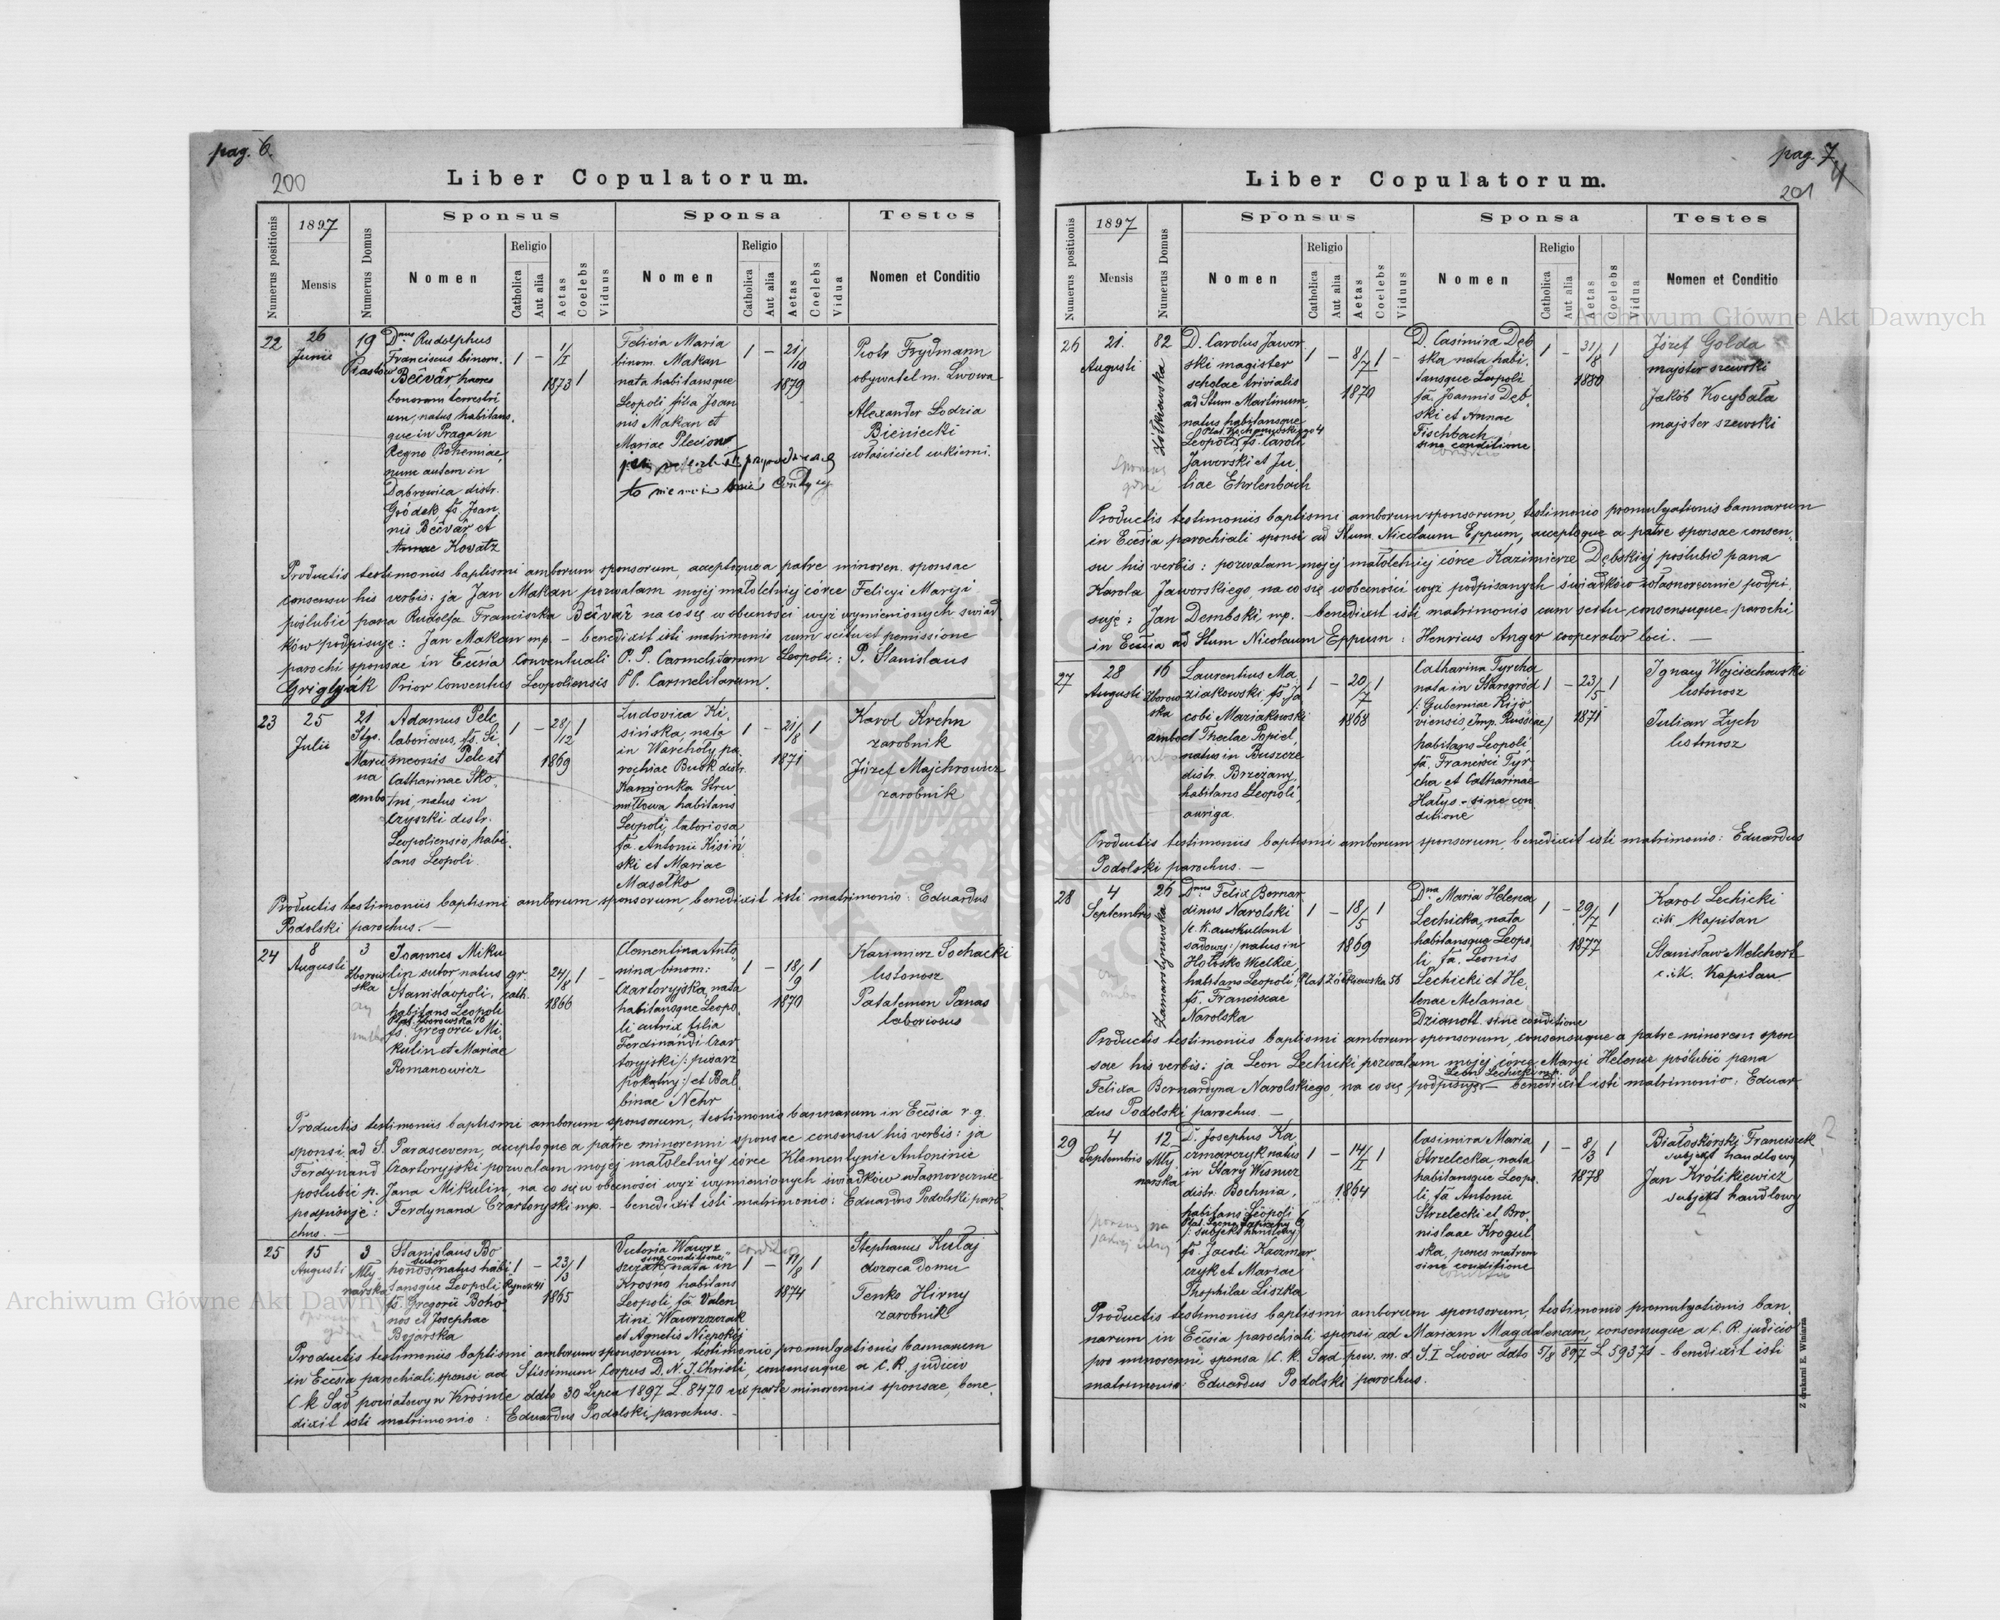 pag. 6.
200
Liber Copulatorum.
Numerus positionis
1897
Mensis
Numerus Domus
Sponsus
Nomen
Religio
Catholica
Aut alia
Aetas
Coelebs
Viduus
Sponsa
Nomen
Religio
Catholica
Aut alia
Aetas
Coelebs
Vidua
Testes
Nomen et Conditio
22
26
Junii
19
Piastów
Dnus Rudolphus
Franciscus binom.
Bečvář haeres
bonorum terrestri
um, natus habitans
que in Praga in
Regno Bohemiae,
nunc autem in
Dąbrowica distr.
Gródek, fs. Joan
nis Bečvář et
Annae Kovatz
1 –
1/I
1873
1
Felicia Maria
binom. Makan
nata habitansque
Leopoli filia Joan
nis Makan et
Mariae Plecion
1 –
21/10
1879
Piotr Frydmann
obywatel m. Lwowa
Alexander Lodzia
Bieniecki
właściciel cukierni.
Productis testimoniis baptismi amborum sponsorum, acceptoque a patre minoren. sponsae
consensu his verbis: ja Jan Makan pozwalam mojej małoletniej córce Felicyi Maryi
poślubić pana Rudolfa Franciszka Bečvář na co się w obecności wyż wymienionych świad
ków podpisuję: Jan Makan mp. – benedixit isti matrimonio cum scitu et permissione
parochi sponsae in Ecclsia Conventuali P. P. Carmelitarum Leopoli: P. Stanislaus
Griglyák Prior Conventus Leopoliensis PP. Carmelitarum.
23
25
Julii
21
Stgo.
Marci
na
ambo
Adamus Pelc
laboriosus, fs. Si
meonis Pelc et
Catharinae Sko
tni, natus in
Czyszki distr.
Leopoliensis, habi
tans Leopoli.
1 –
28/12
1869
1
Ludovica Ki
sińska, nata
in Warchoły pa
rochiae Busk distr.
Kamionka Stru
miłłowa, habitans
Leopoli, laboriosa
fa. Antonii Kisiń
ski et Mariae
Masełko
1 –
21/8
1871
1
Karol Krehn
zarobnik
Józef Majchrowicz
zarobnik
Productis testimoniis baptismi amborum sponsorum, benedixit isti matrimonio: Eduardus
Podolski parochus. –
24
8
Augusti
3
Zborow
ska
Joannes Miku
lin sutor natus
Stanislaopoli,
habitans Leopoli
Plac Zborowska 16
fs. Gregorii Mi
kulin et Mariae
Romanowicz
gr.
cath.
24/8
1866
1 –
Clementina Anto
nina binom:
Czartoryjska, nata
habitansque Leopo
li cutrix filia
Ferdinandi Czar
toryjski /: pisarz
pokątny :/ et Bal
binae Nehr
1 –
18/9
1879
1
Kazimirz Sochacki
listonosz
Patalemon Panas
laboriosus
Productis testimoniis baptismi amborum sponsorum, testimonio bannarum in Ecclsia r. g.
sponsi ad S. Parascevem, acceptoque a patre minorenni sponsae consensu his verbis: ja
Ferdynand Czartoryjski pozwalam mojej małoletniej córce Klementynie Antoninie
poślubić p. Jana Mikulin, na co się w obecności wyż wymienionych świadków własnoręcznie
podpisuję: Ferdynand Czartoryjski mp. – benedixit isti matrimonio: Eduardus Podolski paro
chus. –
25
15
Augusti
3
Mły
narska
Stanislaus Bo
honos sutor natus habi
tansque Leopoli Rynek 41
fs. Gregorii Boho
nos et Josephae
Bojarska
1 –
23/3
1865
1
Victoria Wawrz
sine conditione
szczak nata in
Krosno habitans
Leopoli, fa. Valen
tini Wawrzszczak
et Agnetis Niepokój
1 –
11/8
1874
1
Stephanus Kułaj
dozorca domu
Tenko Hirny
zarobnik
Productis testimoniis baptismi amborum sponsorum, testimonio promulgationis bannarum
in Ecclsia parochiali sponsi ad Stissimum Corpus D. N. J. Christi, consensuque a C. R. judicio
C k Sąd powiatowy w Krośnie ddto 30 Lipca 1897 L. 8470 ex parte minorennis sponsae, bene
dixit isti matrimonio: Eduardus Podolski parochus. –
pag. 7
201
Liber Copulatorum.
Numerus positionis
1897
Mensis
Numerus Domus
Sponsus
Nomen
Religio
Catholica
Aut alia
Aetas
Coelebs
Viduus
Sponsa
Nomen
Religio
Catholica
Aut alia
Aetas
Coelebs
Vidua
Testes
Nomen et Conditio
26
21.
Augusti
82
Żółkiewska
D. Carolus Jawor
ski magister
scholae trivialis
ad Stum Martinum,
natus habitansque
Leopoli, fs. Caroli
Jaworski et Ju
liae Ehrlenbach
1 –
8/7
1870
1 –
D. Casimira Dęb
ska nata habi
tansque Leopoli
fa. Joannis Dęb
ski et Annae
Fischbach
sine conditione
1 –
31/8
1880
1
Józef Golda
majster szewski
Jakób Kocybała
majster szewski
Productis testimoniis baptismi amborum sponsorum, testimonio promulgationis bannarum
in Ecclsia parochiali sponsi ad Stum Nicolaum Eppum, acceptoque a patre sponsae consen
su his verbis: pozwalam mojej małoletniej córce Kazimierze Dębskiej poślubić pana
Karola Jaworskiego, na co się w obecności wyż podpisanych świadków własnoręcznie podpi
suję: Jan Dembski mp. – benedixit isti matrimonio cum scitu consensuque parochi
in Ecclsia ad Stum Nicolaum Eppum: Henricus Anger cooperator loci. –
27
28
Augusti
16
Zborow
ska
ambo
Laurentius Ma
ziakowski fs. Ja
cobi Maziakowski
et Theclae Popiel,
natus in Buszcze
distr. Brzeżany,
habitans Leopoli,
auriga.
1 –
20/7
1868
1
Catharina Tyrcha
nata in Starogród
/: Guberniae Kijo
viensis, Imp. Russiae/
habitans Leopoli
fa. Francisci Tyr
cha et Catharinae
Hałys – sine con
ditione
1 –
23/5
1871
1
Ignacy Wojciechowski
listonosz
Julian Zych
listonosz
Productis testimoniis baptismi amborum sponsorum, benedixit isti matrimonio: Eduardus
Podolski parochus. –
28
4
Septembris
26
Zamarstynowska
Dnus Felix Bernar
dinus Narolski
/c. k. auskultant
sądowy:/ natus in
Hołosko Wielkie,
habitans Leopoli, Plac Żółkiewska 56
fs. Franciscae
Narolska
1 –
18/5
1869
1
Dna Maria Helena
Lechicka, nata
habitansque Leopo
li, fa. Leonis
Lechicki et He
lenae Melaniae
Dzianott. sine conditione
1 –
29/7
1877
1
Karol Lechicki
c. k. Kapitan
Stanisław Melchork
c. i k. Kapitan
Productis testimoniis baptismi amborum sponsorum, consensuque a patre minoren spon
sae his verbis: ja Leon Lechicki pozwalam mojej córce Maryi Helenie poślubić pana
Leon Lechicki mp.
Felixa Bernardyna Narolskiego, na co się podpisuję – benedixit isti matrimonio: Eduar
dus Podolski parochus. –
29
4
Septembris
12
Mły
narska
D. Josephus Ka
czmarczyk natus
in Stary Wisnicz
distr. Bochnia,
habitans Leopoli
/: subjekt handlowy
fs. Jacobi Kaczmar
czyk et Mariae
Theophilae Liszka
1 –
14/I
1864
1
Casimira Maria
Strzelecka, nata
habitansque Leopo
li, fa. Antonii
Strzelecki et Bro
nislaae Krogul
ska, penes matrem
sine conditione
1 –
8/3
1878
1
Białoskórski Franciszek
subjekt handlowy
Jan Królikiewicz
subjekt handlowy
Productis testimoniis baptismi amborum sponsorum, testimonio promulgationis ban
narum in Ecclsia parochiali sponsi ad Mariam Magdalenam, consensuque a C. R. judicio
pro minorenni sponsa /c. k. Sąd pow. m. d. S. I Lwów ddto 5/8 897 L 59371 – benedixit isti
matrimonio: Eduardus Podolski parochus.
Z drukarni E. Winiarza
Archiwum Główne Akt Dawnych
Archiwum Główne Akt Dawnych